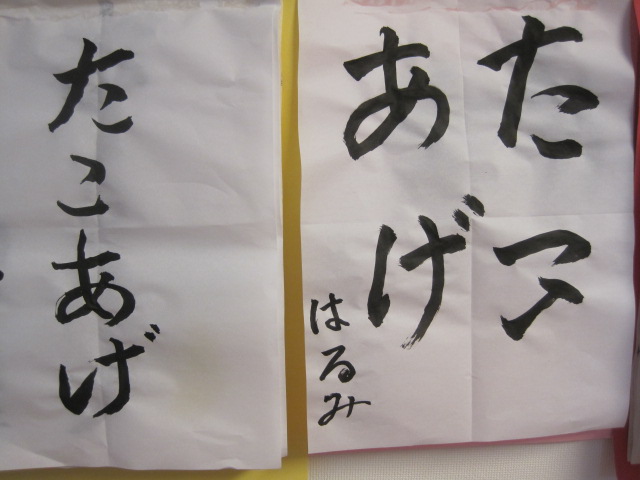 たこ
あげ
はるみ
たこあげ